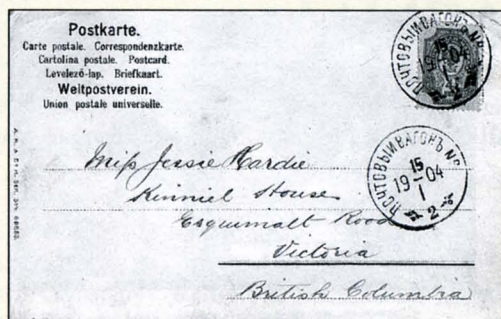 Postkarte.
Carte postale. Correspondenzkarte.
Cartolina postale. Postcard.
Levelező-lap. Briefkaart.
Weltpostverein.
Union postale universelle.
ПОЧТОВЫЙ ВАГОНЪ №
15
19-04
I
ПОЧТОВЫЙ ВАГОНЪ №
15
19-04
I
2
Miss Jessie Hardie
Kinniel House
Esquimalt Road
Victoria
British Columbia